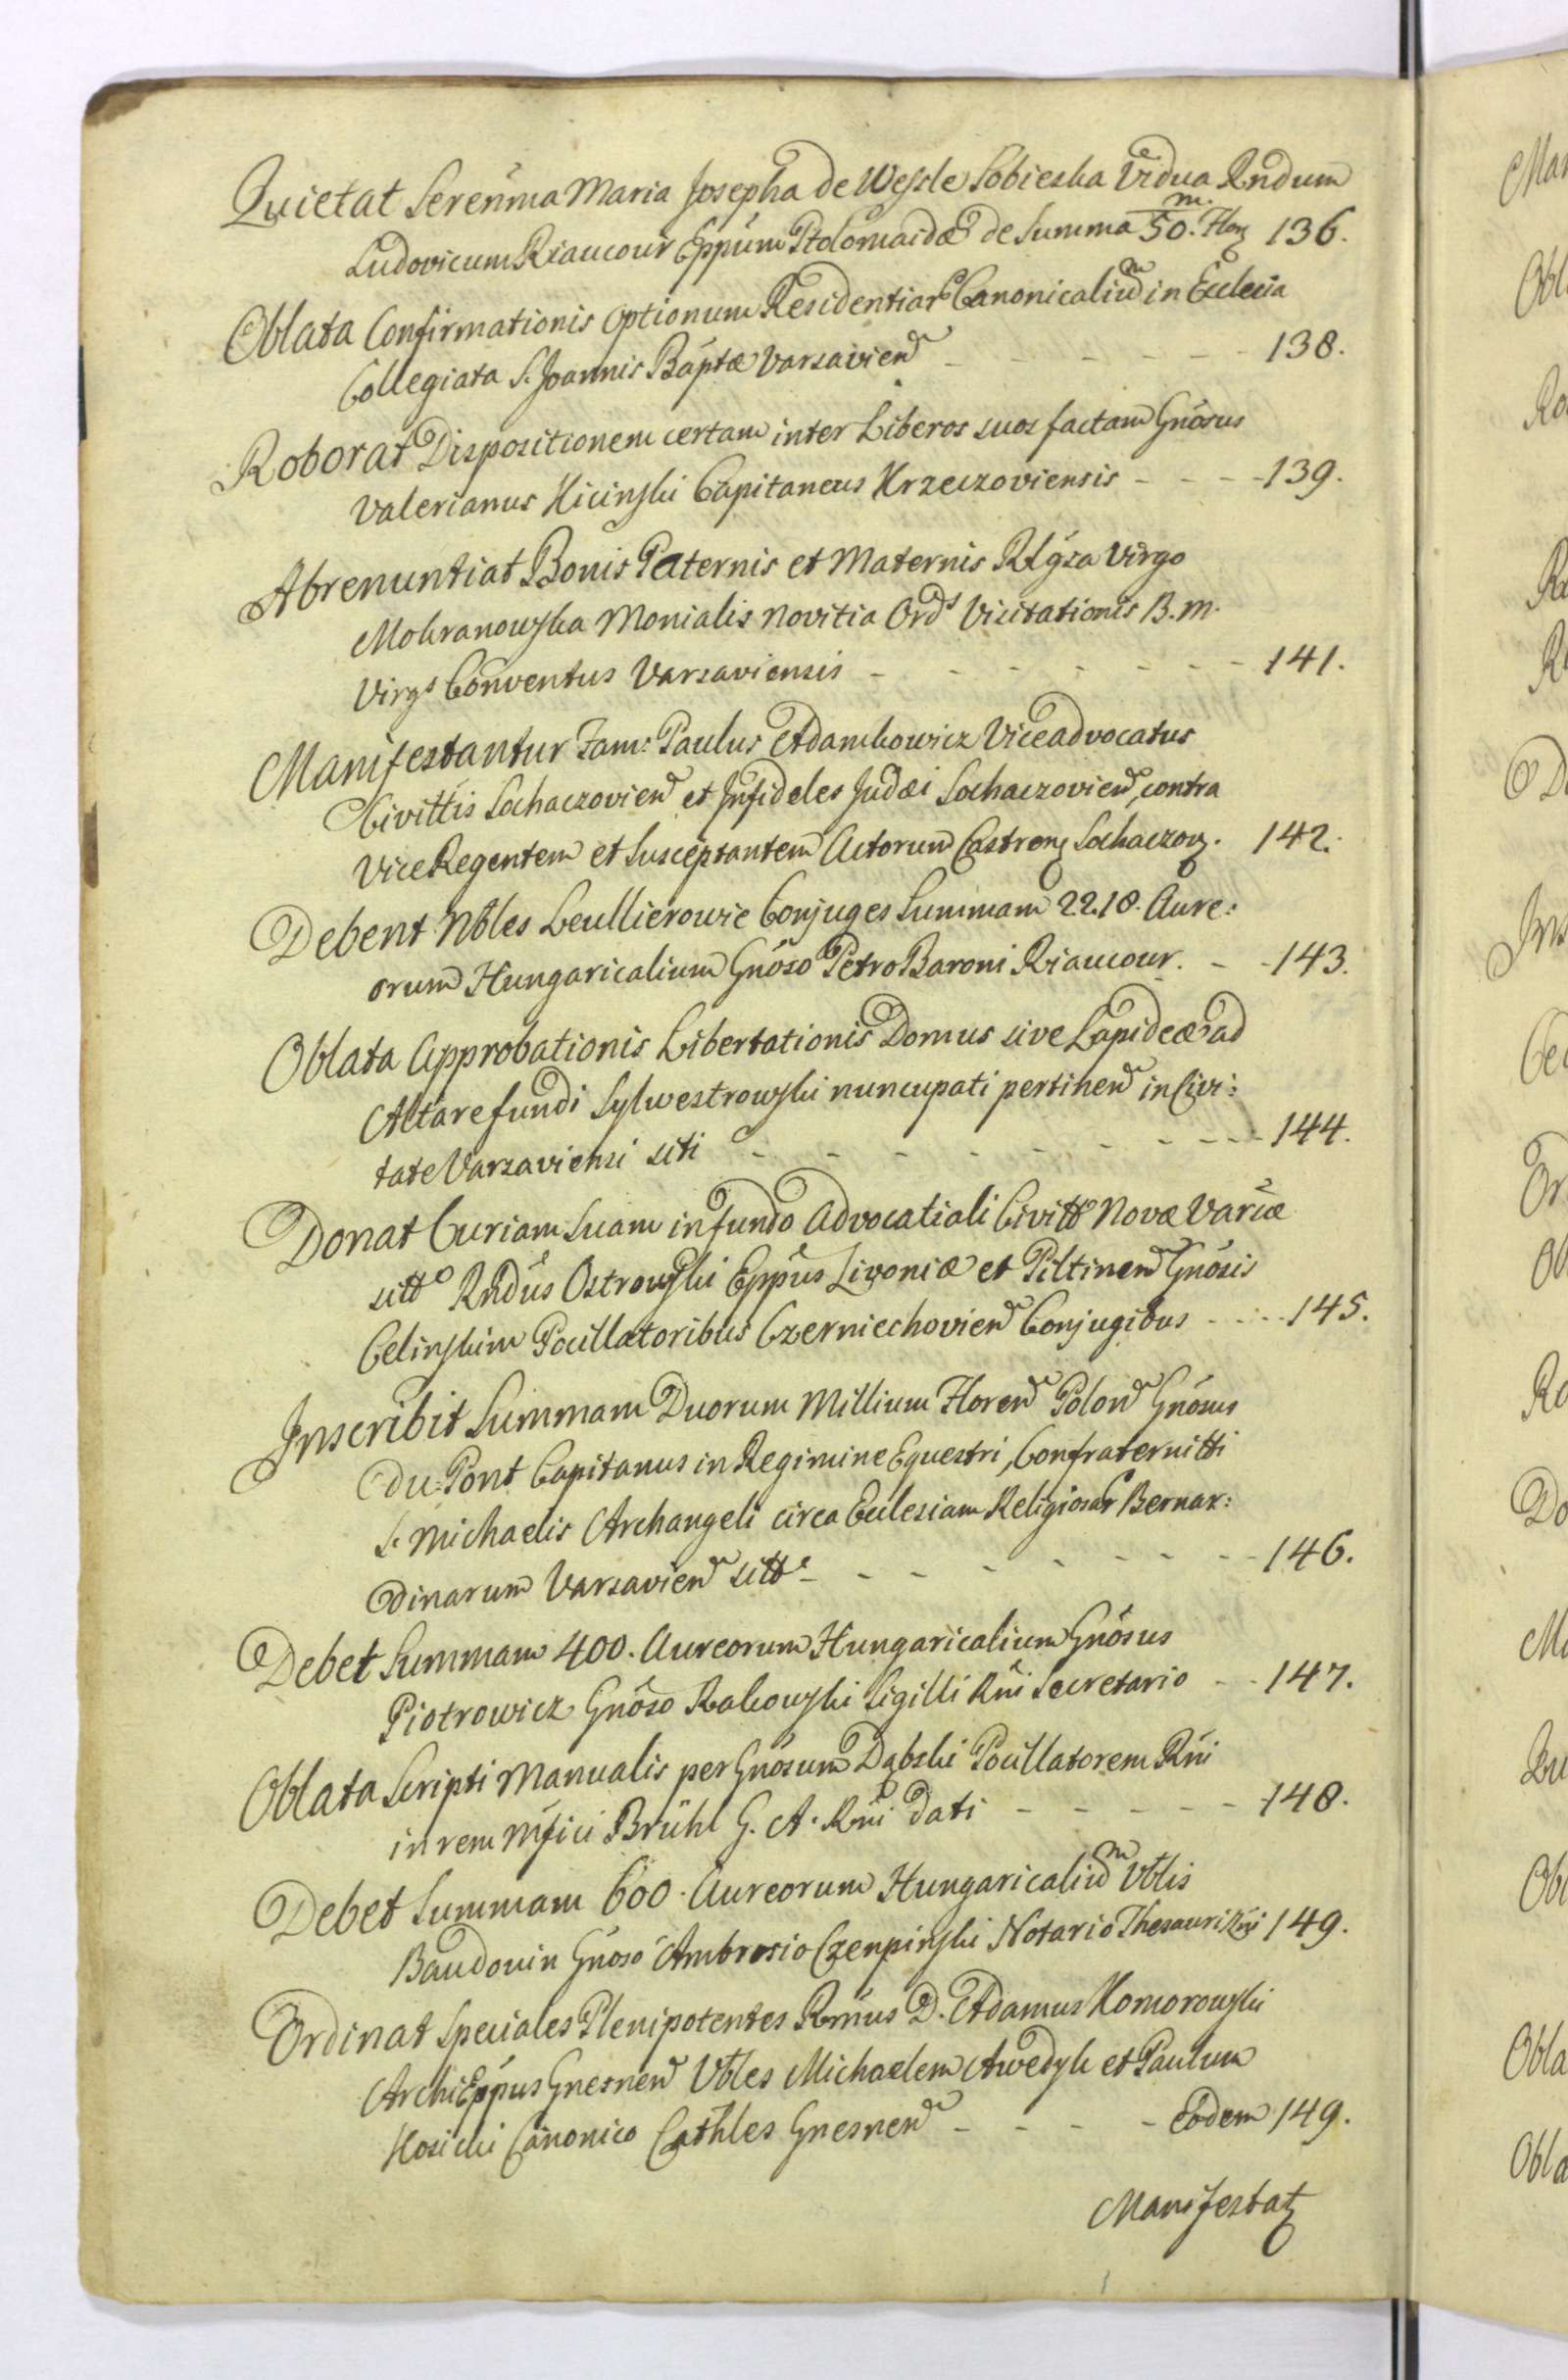 Quietat Serenma Maria Josepha de Wessle Sobieska Vidua Rndum
Ludovicum Riaucour Eppum Ptolomaidæ de Summa 50.m. Flor 136.
Oblata Confirmationis Optionum Residentiar Canonicalium in Ecclecia
Collegiata S. Joannis Baptæ Varsavien - - - - - 138.
Roborat Dispositionem certam inter Liberos suos factam Gnosus
Valerianus Kicinski Capitaneus Krzeczoviensis - - - 139.
Abrenuntiat Bonis Paternis et Maternis Rlgsa Virgo
Mokranowska Monialis Novitia Ords Visitationis B. M.
Virgs Conventus Varsaviensis - - - - - - 141.
Manifestantur Fam: Paulus Adamkowicz Viceadvocatus
Civittis Sochaczovien et Infideles Judæi Sochaczovien, contra
ViceRegentem et Susceptantem Actorum Castren Sochaczov. 142.
Debent Nbles Leullierowie Conjuges Summam 2218. Aure:
orum Hungaricalium Gnoso Petro Baroni Riaucour. - - 143.
Oblata Approbationis Libertationis Domus sive Lapideæ ad
Altare fundi Sylwestrowski nuncupati pertinen in Civi:
tate Varsaviensi siti - - - - - - - - 144.
Donat Curiam Suam in fundo Advocatiali Civitt Novæ Variæ
sitt Rndus Ostrowski Eppus Livoniæ et Piltinen Gnosis
Celinskim Pocillatoribus Czerniechovien Conjugibus - - - 145.
Inscribit Summam Duorum Millium Floren Polon Gnosus
Du-Pont Capitanus in Regimine Equestri, Confraternitti
S. Michaelis Archangeli circa Ecclesiam Religiosar Bernar:
dinarum Varsavien sitt - - - - - - - 146.
Debet Summam 400. Aureorum Hungaricalium Gnosus
Piotrowicz Gnoso Rakowski Sigilli Rni Secretario - - 147.
Oblata Scripti Manualis per Gnosum Dąbski Pocillatorem Rni
in rem Mfici Brühl G. A. Rni Dati - - - - - 148.
Debet Summam 600. Aureorum Hungaricalium Vblis
Baudouin Gnoso Ambrosio Czenpinski Notario Thesauri Rni 149.
Ordinat Speciales Plenipotentes Rmus D. Adamus Komorowski
ArchiEppus Gnesnen Vbles Michaelem Awedyk et Paulum
Kosicki Canonico Cathles Gnesnen - - - - Eodem 149.
Manifestat